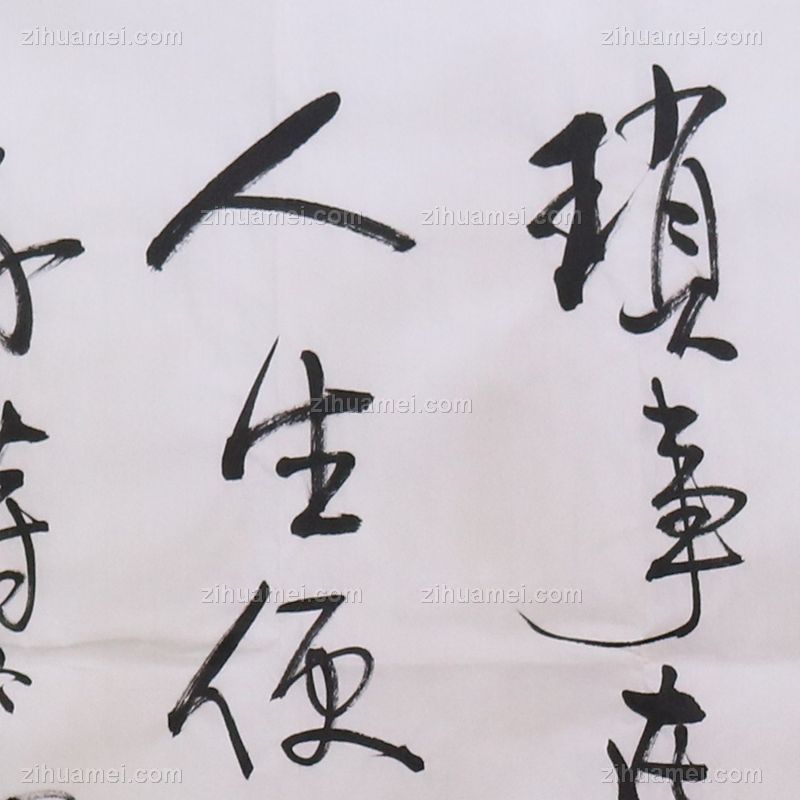 瑣事在
人生便
zihuamei.com zihuamei.com
zihuamei.com zihuamei.com
zihuamei.com
zihuamei.com zihuamei.com
zihuamei.com zihuamei.com